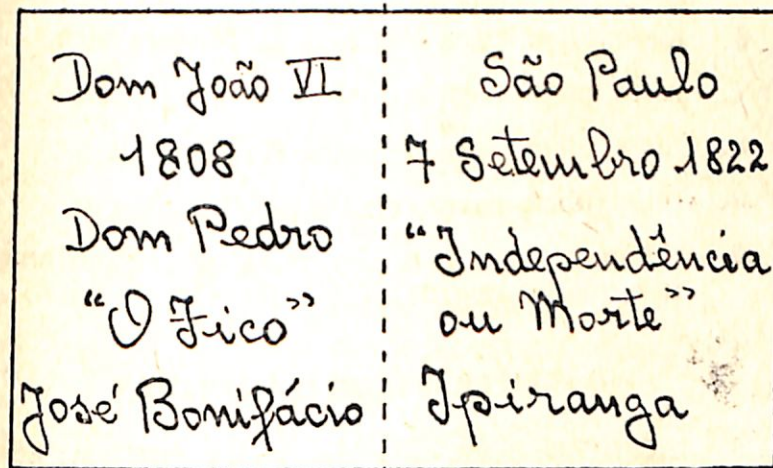 Dom João VI
1808
Dom Pedro
“O Fico”
José Bonifácio
São Paulo
7 Setembro 1822
“Independência
ou Morte”
Ipiranga